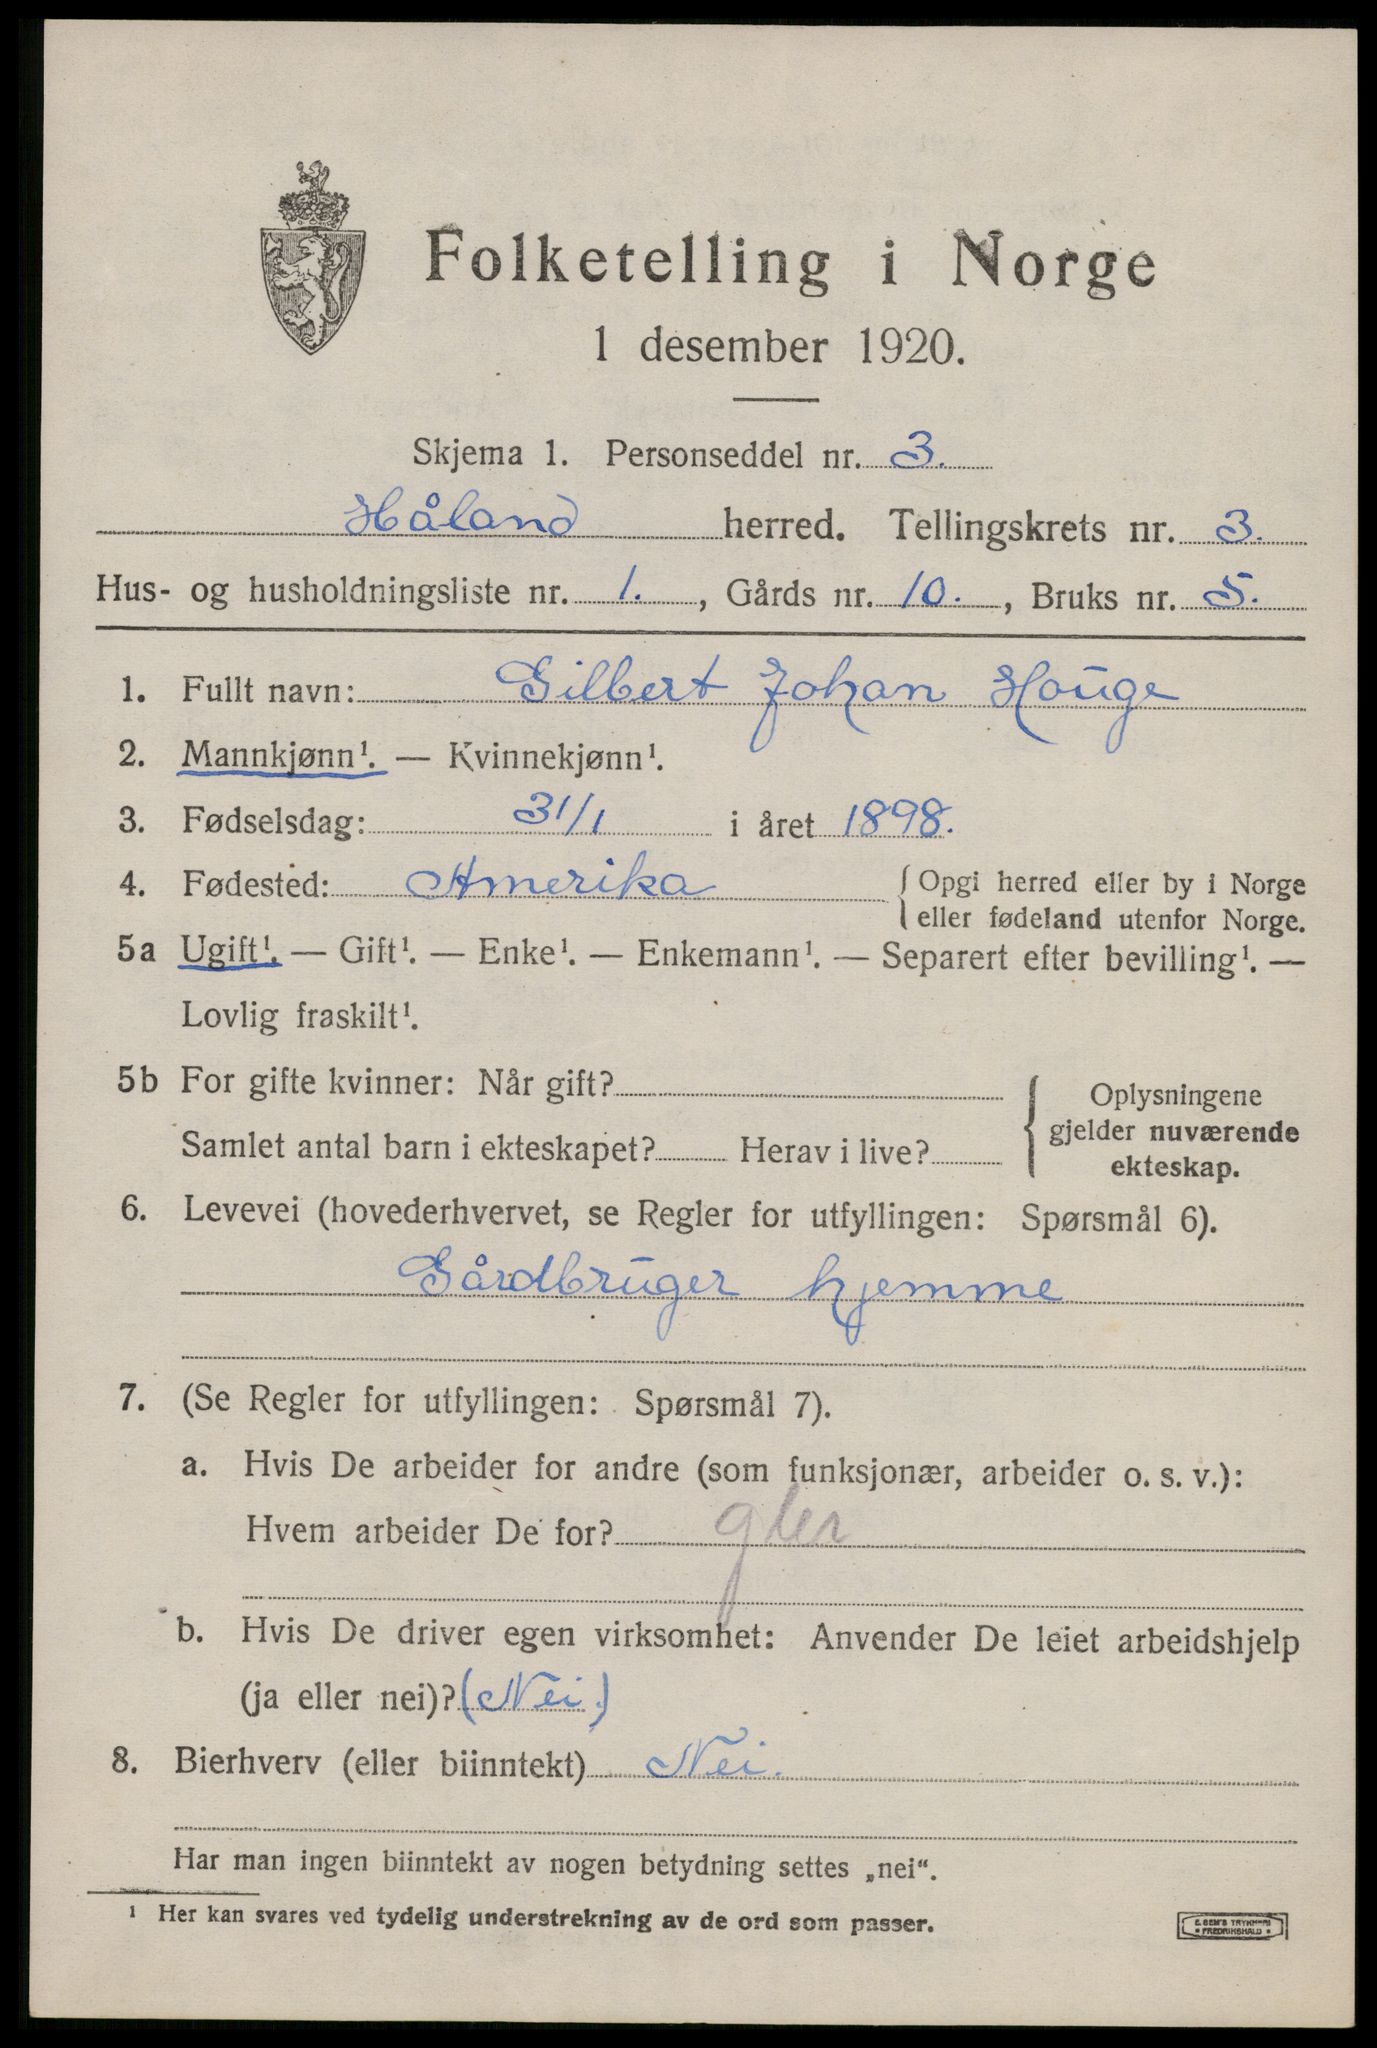 Folketelling i Norge
1 desember 1920.
Skjema 1. Personseddel nr. 3.
Håland herred. Tellingskrets nr. 3.
Hus- og husholdningsliste nr. 1., Gårds nr. 10., Bruks nr. 5.
1. Fullt navn: Gilbert Johan Houge
2. Mannkjønn¹. — Kvinnekjønn¹.
3. Fødselsdag: 31/1 i året 1898.
4. Fødested: Amerika { Opgi herred eller by i Norge
eller fødeland utenfor Norge.
5a Ugift¹. — Gift¹. — Enke¹. — Enkemann¹. — Separert efter bevilling¹. —
Lovlig fraskilt¹.
5b For gifte kvinner: Når gift?
Samlet antal barn i ekteskapet? Herav i live?
{ Oplysningene
gjelder nuværende
ekteskap.
6. Levevei (hovederhvervet, se Regler for utfyllingen: Spørsmål 6).
Gårdbruger hjemme
7. (Se Regler for utfyllingen: Spørsmål 7).
a. Hvis De arbeider for andre (som funksjonær, arbeider o. s. v.):
Hvem arbeider De for?
b. Hvis De driver egen virksomhet: Anvender De leiet arbeidshjelp
(ja eller nei)? (Nei.)
8. Bierhverv (eller biinntekt) Nei.
Har man ingen biinntekt av nogen betydning settes „nei“.
¹ Her kan svares ved tydelig understrekning av de ord som passer.
E. SEM'S TRYKKERI
FREDRIKSHALD